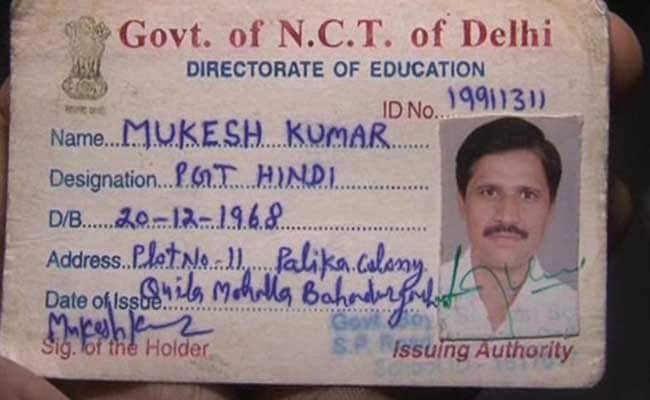 Govt. of N.C.T. of Delhi
DIRECTORATE OF EDUCATION
ID No... 19911311
Name... MUKESH KUMAR
Designation... PGT HINDI
D/B..... 20-12-1968
Address.. Plot No-11 Palika Colony
Quila Mohalla Bahadurgarh
Date of Issue
Mukesh
Sig. of the Holder
Issuing Authority